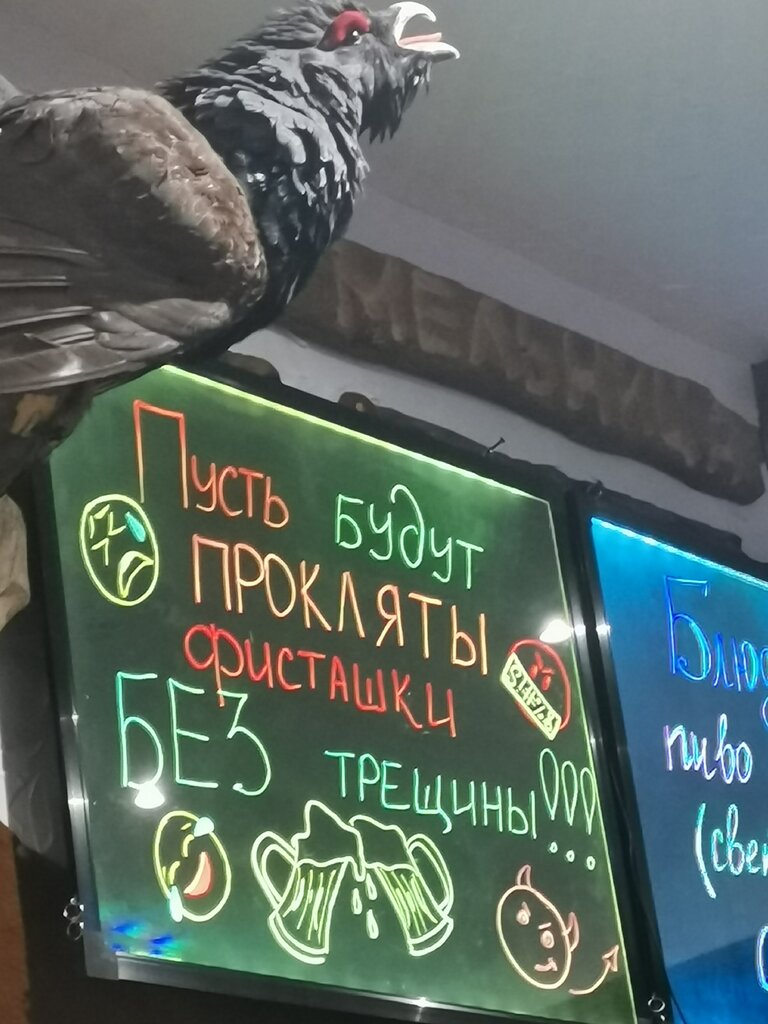 МЕЛЬНИ
Пусть будут
прокляты
фисташки
БЕЗ трещины!!!
Блюд
пиво
(све